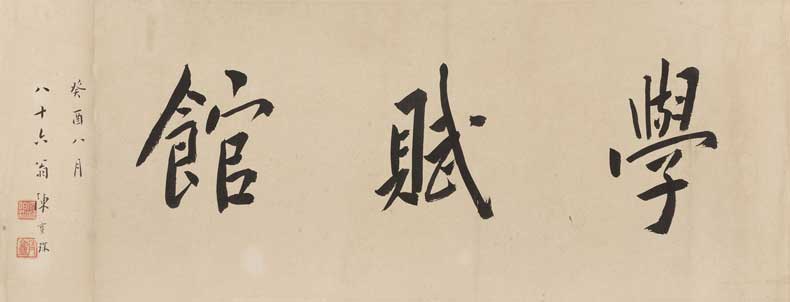 學賦館
癸酉八月
八十六翁陳寶琛